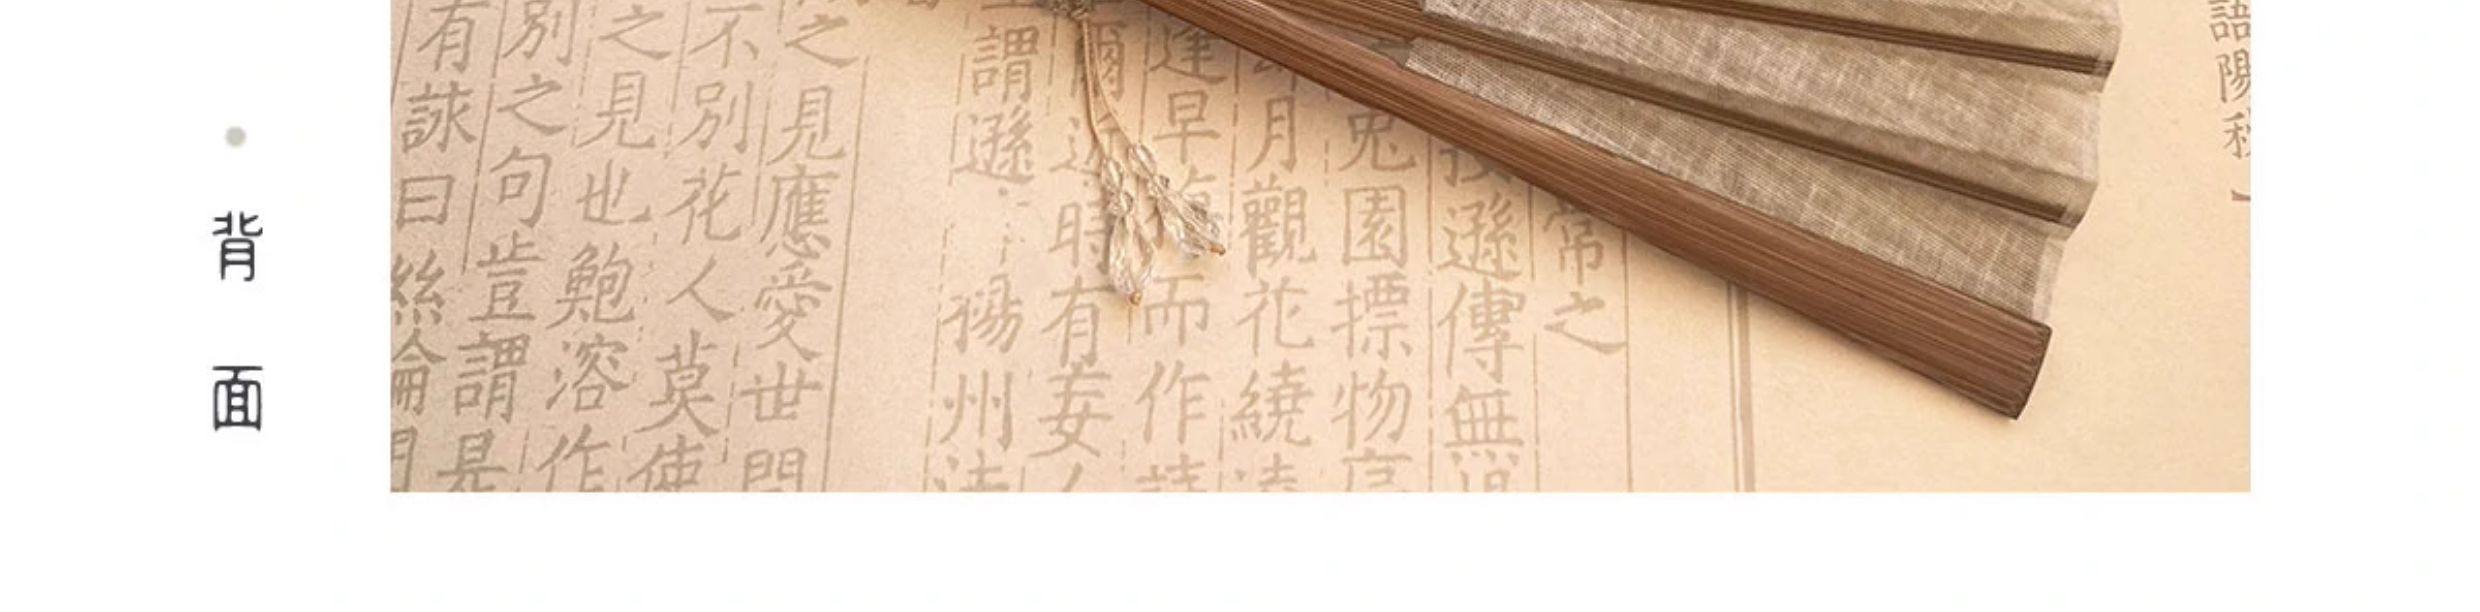 語陽秋】
常之
遜傳無
兔園摽物
月觀花繞
逢早梅而作詩
爾近時有妄人
謂遜揚州法
之見應愛世間
不別花人莫使
之見也鮑溶作
別之句豈謂是
有詠曰絲綸
背面